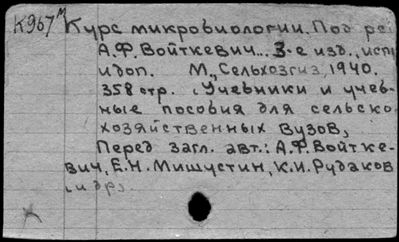 К967м Курс микробиологии. Под ре
А.Ф. Войткевич... 3-е изд., исп
и доп. М., Сельхозгиз, 1940.
358 стр. (Учебники и учеб-
ные пособия для сельско
хозяйственных вузов)
Перед загл. авт.: А.Ф. Войтке-
вич, Е.Н. Мишустин, К.И. Рудаков
и др.